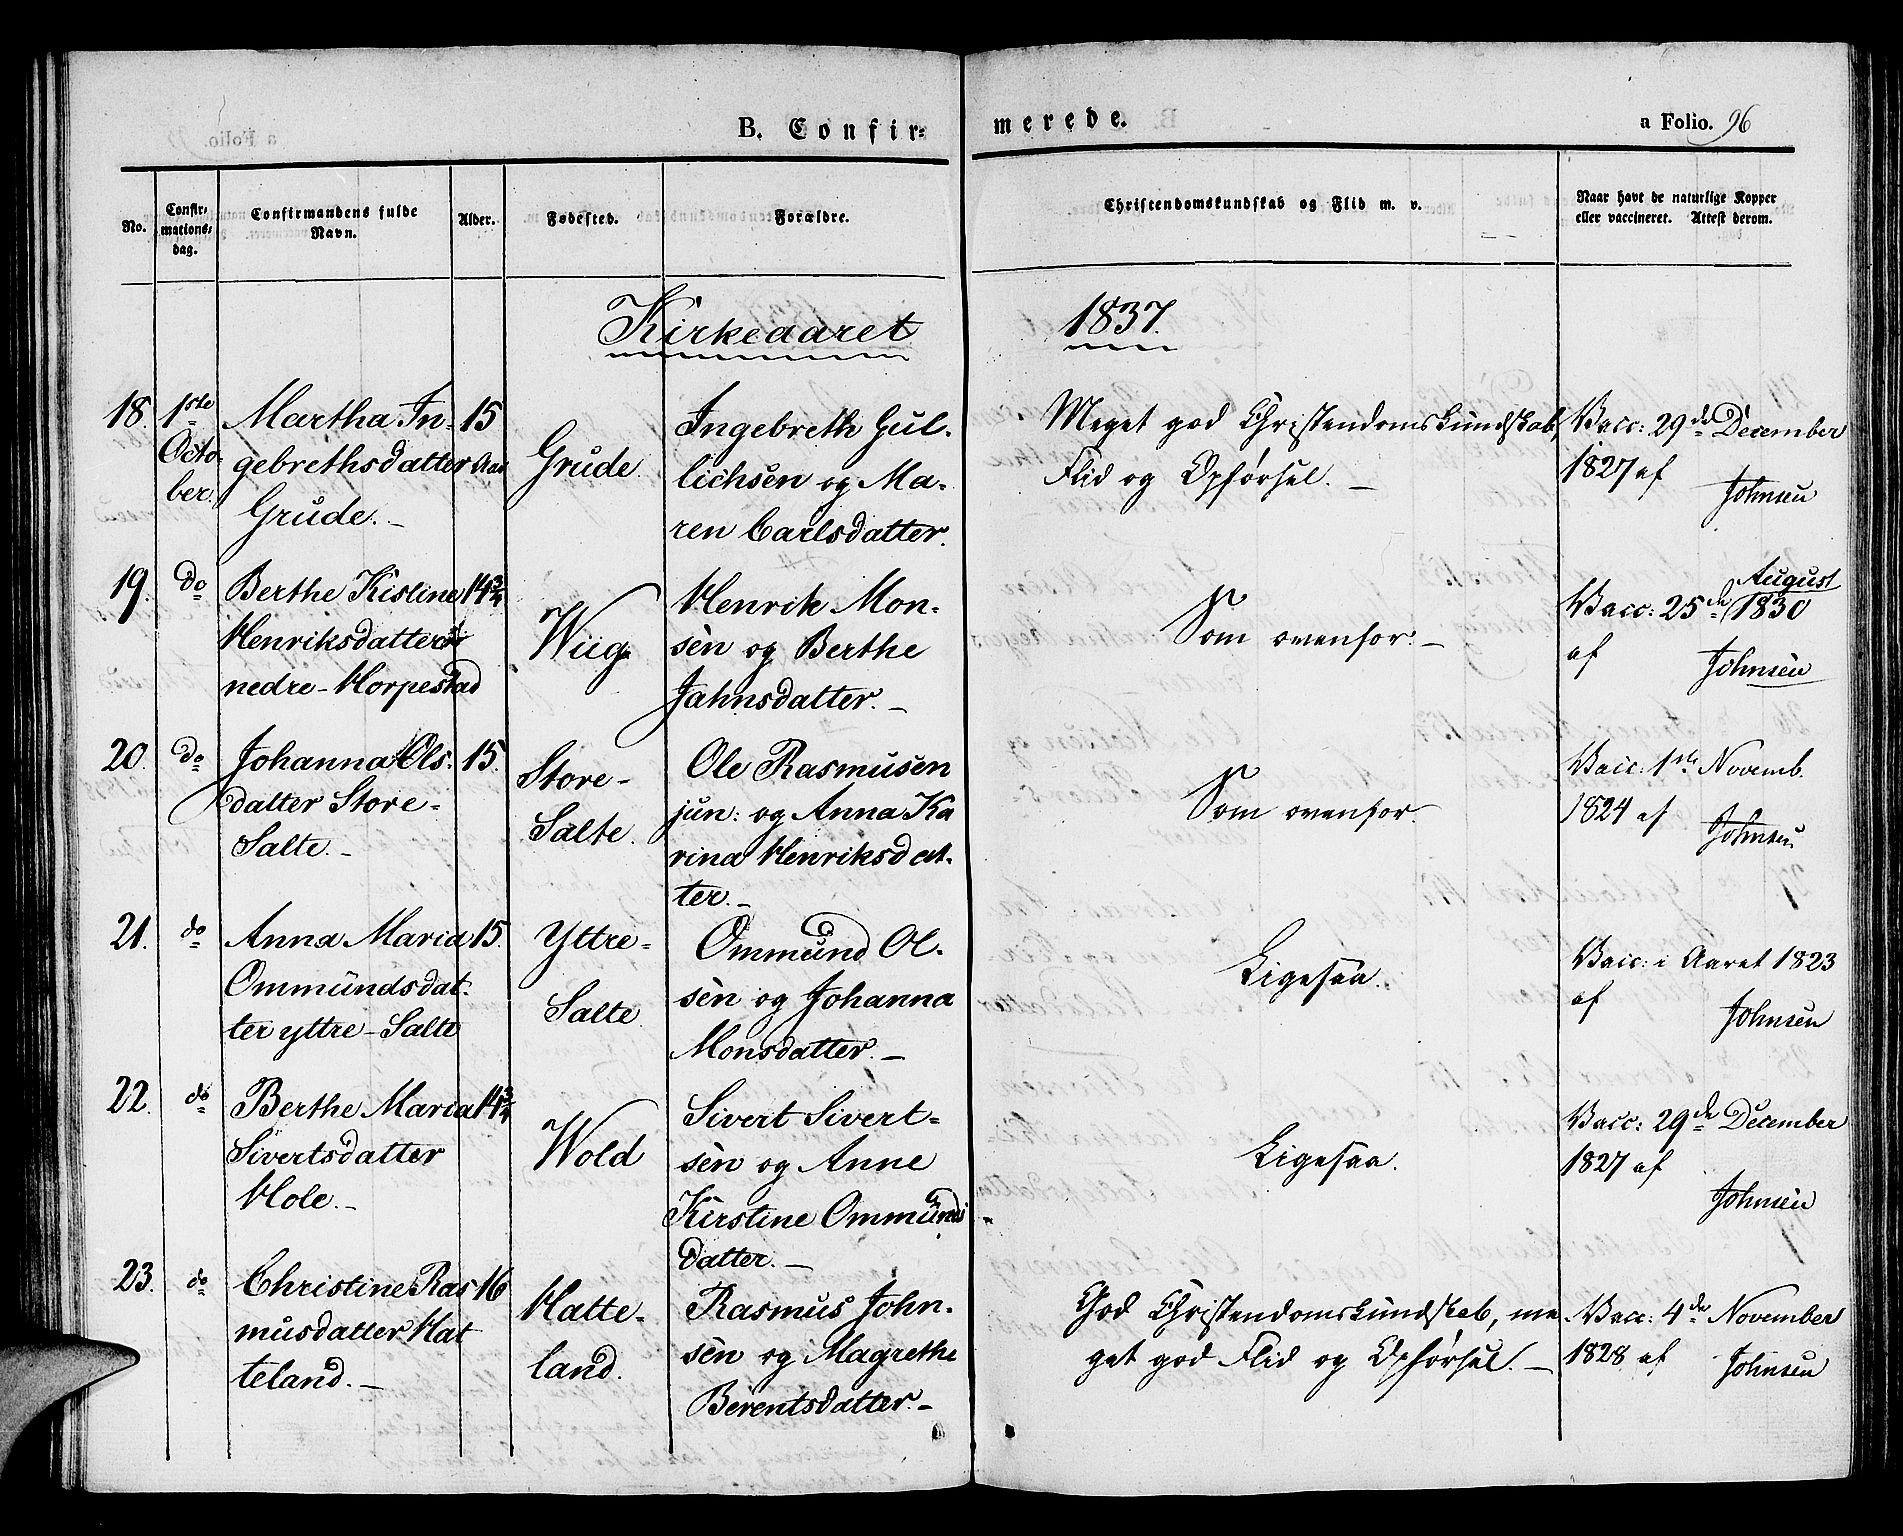 B. Confir=
merede.
a Folio. 96
No.
Confir=
mations=
dag.
Confirmandens fulde
Navn.
Alder.
Fødested.
Forældre.
Christendomskundskab og Flid m. v.
Naar havt de naturlige Kopper
eller vaccineret. Attest derom.
Kirkeaaret
1837.
18.
1ste
Octo-
ber.
Martha In-
gebrethsdatter
Grude.-
15
Aar
Grude.
Ingebreth Gul-
lichsen og Ma-
ren Carlsdatter.
Meget god Christendomskundskab,
Flid og Opførsel. -
Vacc: 29de December
1827 af
Johnsen
19.
do
Berthe Kistine
Henriksdatter
nedre-Horpestad
14 3/4
Wiig
Henrik Mon-
sen og Berthe
Jahnsdatter. -
Som ovenfor. -
August
Vacc: 25de 1830
af
Johnsen
20.
do
Johanna Ols-
datter Store-
Salte.-
15.
Store-
Salte.
Ole Rasmusen
jun: og Anna Ka
rina Henriksdat-
ter.-
Som ovenfor.
Vacc: 1ste Novemb.
1824 af
Johnsen
21.
do
Anna Maria
Ommundsdat-
ter yttre-Salte
15.
Yttre-
Salte.
Ommund Ol-
sen og Johanna
Monsdatter. -
Ligesaa.
Vacc: i Aaret 1823
af
Johnsen
22.
do
Berthe Maria
Sivertsdatter
Hole.-
14 3/4
Wold
Sivert Sivert-
sen og Anne
Kirstine Ommunds-
datter. -
Ligesaa.
Vacc: 29de December
1827 af
Johnsen
23.
do
Christine Ras
musdatter Hat
teland. -
16
Hatte-
land.
Rasmus John-
sen og Magrethe
Berentsdatter.-
God Christendomskundskab, me
get god Flid og Opførsel. -
Vacc: 4de November
1828 af
Johnsen